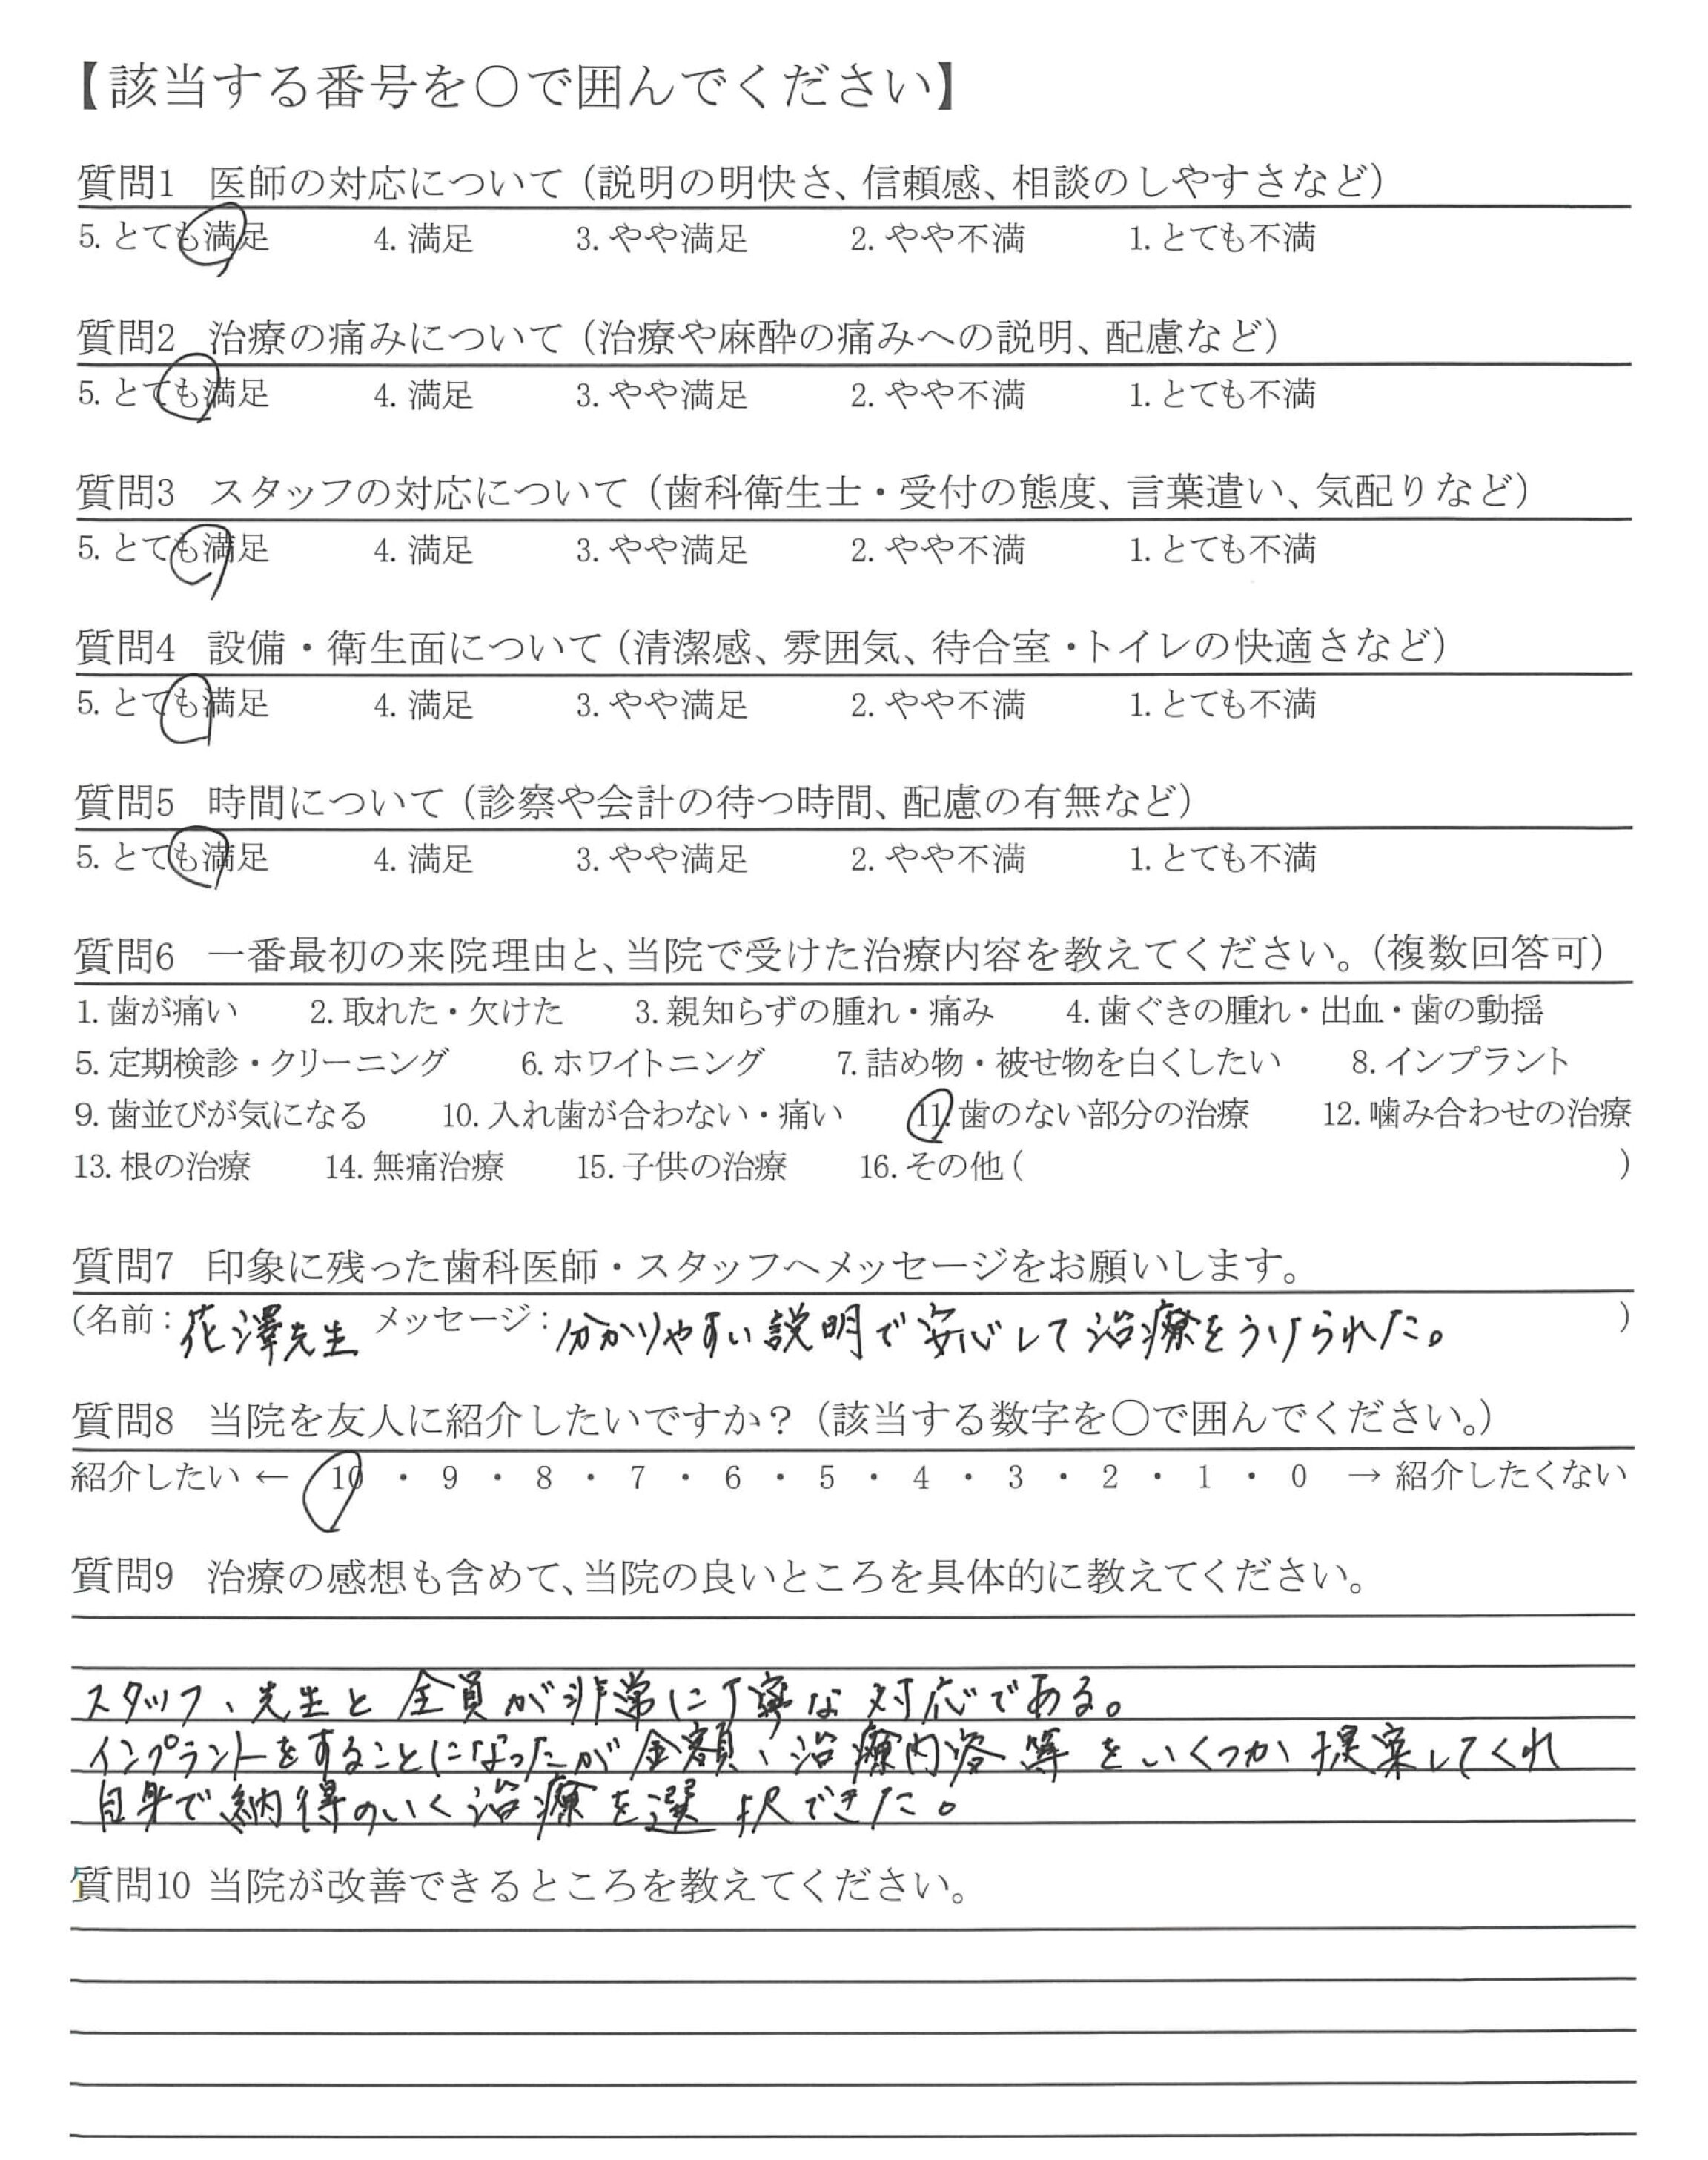 【該当する番号を〇で囲んでください】
質問1 医師の対応について（説明の明快さ、信頼感、相談のしやすさなど）
5. とても満足 4. 満足 3. やや満足 2. やや不満 1. とても不満
質問2 治療の痛みについて（治療や麻酔の痛みへの説明、配慮など）
5. とても満足 4. 満足 3. やや満足 2. やや不満 1. とても不満
質問3 スタッフの対応について（歯科衛生士・受付の態度、言葉遣い、気配りなど）
5. とても満足 4. 満足 3. やや満足 2. やや不満 1. とても不満
質問4 設備・衛生面について（清潔感、雰囲気、待合室・トイレの快適さなど）
5. とても満足 4. 満足 3. やや満足 2. やや不満 1. とても不満
質問5 時間について（診察や会計の待つ時間、配慮の有無など）
5. とても満足 4. 満足 3. やや満足 2. やや不満 1. とても不満
質問6 一番最初の来院理由と、当院で受けた治療内容を教えてください。（複数回答可）
1. 歯が痛い 2. 取れた・欠けた 3. 親知らずの腫れ・痛み 4. 歯ぐきの腫れ・出血・歯の動揺
5. 定期検診・クリーニング 6. ホワイトニング 7. 詰め物・被せ物を白くしたい 8. インプラント
9. 歯並びが気になる 10. 入れ歯が合わない・痛い 11. 歯のない部分の治療 12. 噛み合わせの治療
13. 根の治療 14. 無痛治療 15. 子供の治療 16. その他（ ）
質問7 印象に残った歯科医師・スタッフへメッセージをお願いします。
（名前：花澤先生 メッセージ：分かりやすい説明で安心して治療をうけられた。）
質問8 当院を友人に紹介したいですか？（該当する数字を〇で囲んでください。）
紹介したい ← 10 ・ 9 ・ 8 ・ 7 ・ 6 ・ 5 ・ 4 ・ 3 ・ 2 ・ 1 ・ 0 → 紹介したくない
質問9 治療の感想も含めて、当院の良いところを具体的に教えてください。
スタッフ、先生と全員が非常に丁寧な対応である。
インプラントをすることになったが金額、治療内容等をいくつか提案してくれ
自身で納得のいく治療を選択できた。
質問10 当院が改善できるところを教えてください。